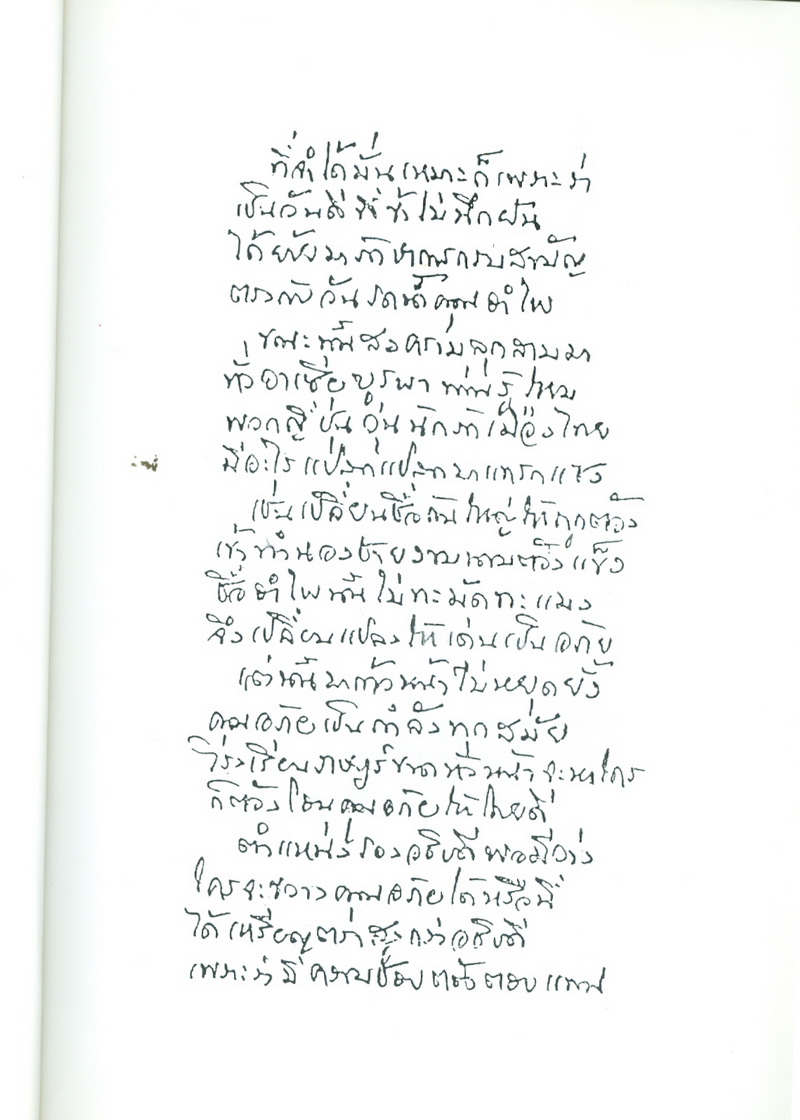 ที่จำได้มั่นเหมาะก็เพราะว่า
เป็นวันดีที่ข้าไม่นึกฝัน
ได้ย้ายมาภาควิชาการ
ตรงกับวันรดน้ำคุณอำไพ
ขณะนั้นสงครามลุกลามมา
ทั่วอาเซียบูรพา
พวกญี่ปุ่นวุ่นนักภาคเมืองไทย
มีอะไรแปลกแปลกมาแทรกแซง
เช่นเปลี่ยนชื่อกันใหญ่ให้ถูกต้อง
เข้าทำนองชายงามนามแข็ง
ชื่ออำไพนั้นไม่ทะมัดทะแมง
จึงเปลี่ยนแปลงให้เด่นเป็นอภัย
แต่นั้นมาก้าวหน้าไม่หยุดยั้ง
คุณอภัยเป็นกำลังทุกสมัย
โรงเรียนราษฎร์ขาดหัวหน้าจะหาใคร
ก็ต้องโอนคุณอภัยให้ไปดี
ตำแหน่งรองอธิบดีพอมีว่าง
ใครจะขวางคุณอภัยได้หรือนี่
ได้เหรียญตรา กว่าอธิบดี
เพราะว่ามีความชอบต้องตอบแทน